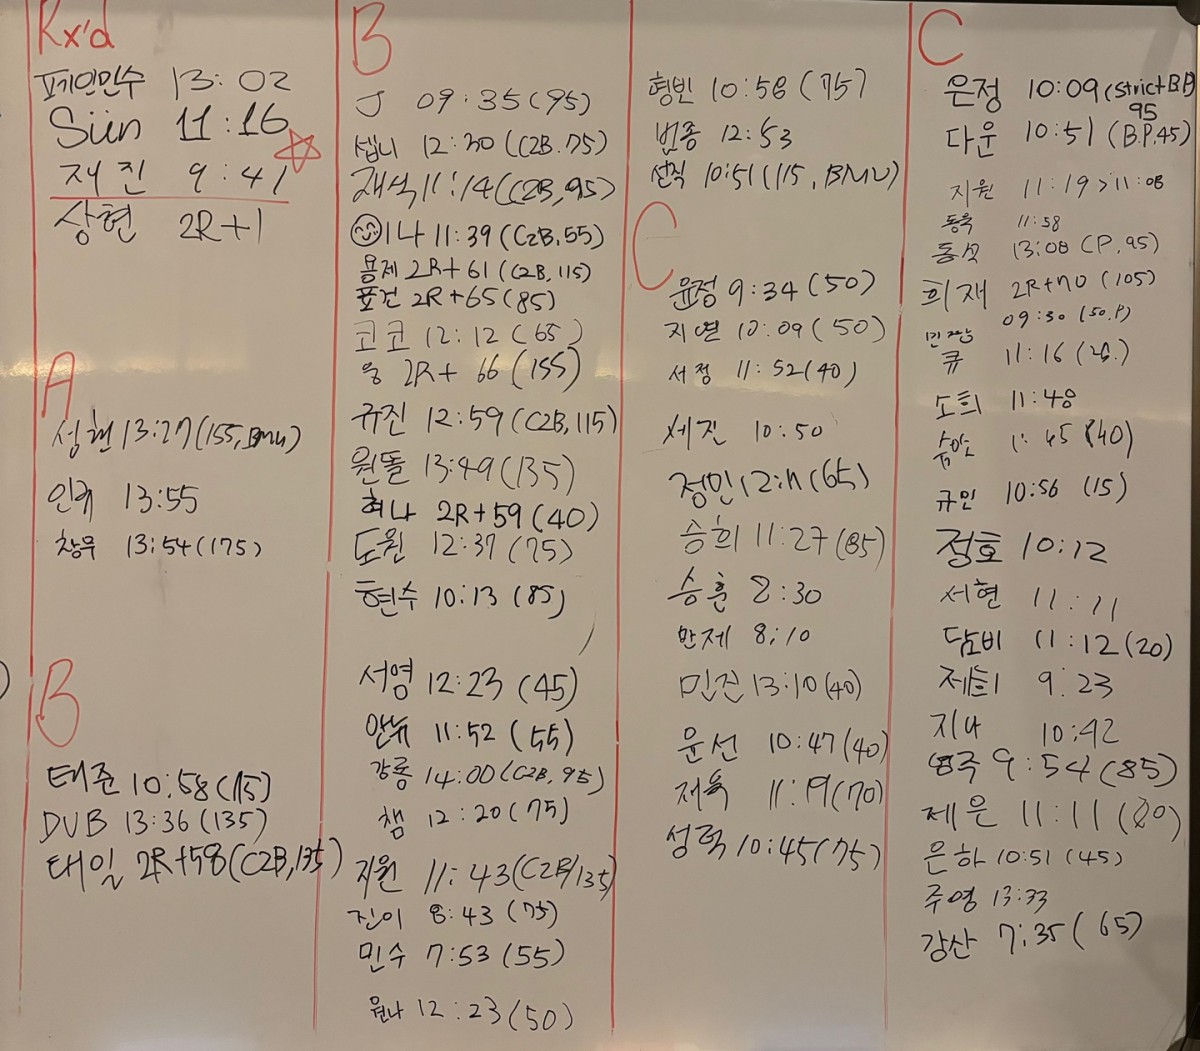 Rx'd
프게인민수 13:02
Sün 11:16
재진 9:41
상현 2R+1
A
성현 13:27(155, BMU)
인규 13:55
창우 13:54(175)
B
태준 10:58(75)
DUB 13:36(135)
태일 2R+58(C2B,135)
B
J 09:35(95)
셉니 12:30(C2B.75)
재석 11:14(C2B,95)
이나 11:39(C2B,55)
용제 2R+61(C2B,115)
표건 2R+65(85)
코코 12:12(65)
웅 2R+66(155)
규진 12:59(C2B,115)
원돌 13:49(135)
혀나 2R+59(40)
도원 12:37(75)
현수 10:13(85)
서영 12:23(45)
11:52(55)
강룡 14:00(C2B,95)
챔 12:20(75)
지원 11:43(C2B/135)
진이 8:43(75)
민수 7:53(55)
원나 12:23(50)
형빈 10:58(75)
번종 12:53
선직 10:51(115, BMU)
C
윤정 9:34(50)
지연 10:09(50)
서정 11:52(40)
세진 10:50
정민 12:11(65)
승희 11:27(85)
승훈 8:30
반제 8:10
민진 13:10(40)
운선 10:47(40)
저육 11:19(70)
성혁 10:45(75)
C
은정 10:09(strict BP
95
다운 10:51(B.P.45)
지원 11:19>11:08
동욱 11:58
동석 13:08(P,95)
희재 2R+70(105)
민장 09:30(50.P)
큐 11:16(20.)
소희 11:48
45(40)
규민 10:56(15)
정호 10:12
서현 11:11
담비 11:12(20)
제희 9:23
지나 10:42
9:54(85)
제은 11:11(80)
은하 10:51(45)
주영 13:33
강산 7:35(65)